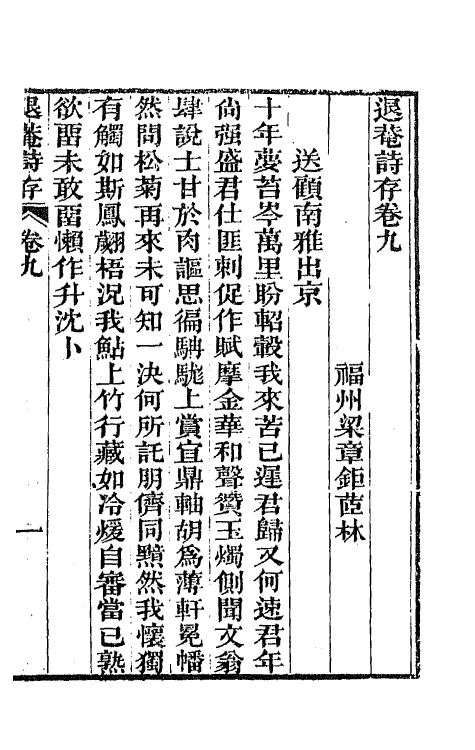 退菴詩存卷九
福州梁章鉅茝林
送顧南雅出京
十年夢苔岑萬里盼軺轂我來苦已遲君歸又何速君年
尙强盛君仕匪刺促作賦摩金華和聲贊玉燭側聞文翁
肆說士甘於肉謳思徧騁駹上賞宜鼎軸胡爲薄軒冕幡
然問松菊再來未可知一決何所託朋儕同黯然我懷獨
有觸如斯鳳翽梧況我鮎上竹行藏如冷煖自審當已熟
欲畱未敢畱懶作升沈卜
退菴詩存
卷九
一